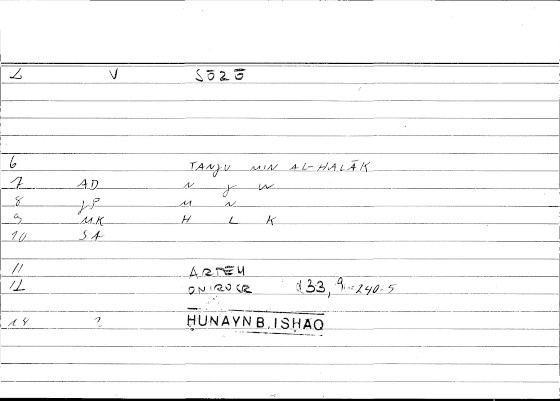 2 V SŌZŌ
6 TANJU MIN AL-HALĀK
7 AD N J W
8 JP M N
9 MK H L K
10 SA
11 ARTEM
12 ONIROCR 133, 9 = 240.5
14 ? ḤUNAYN B. ISḤĀQ